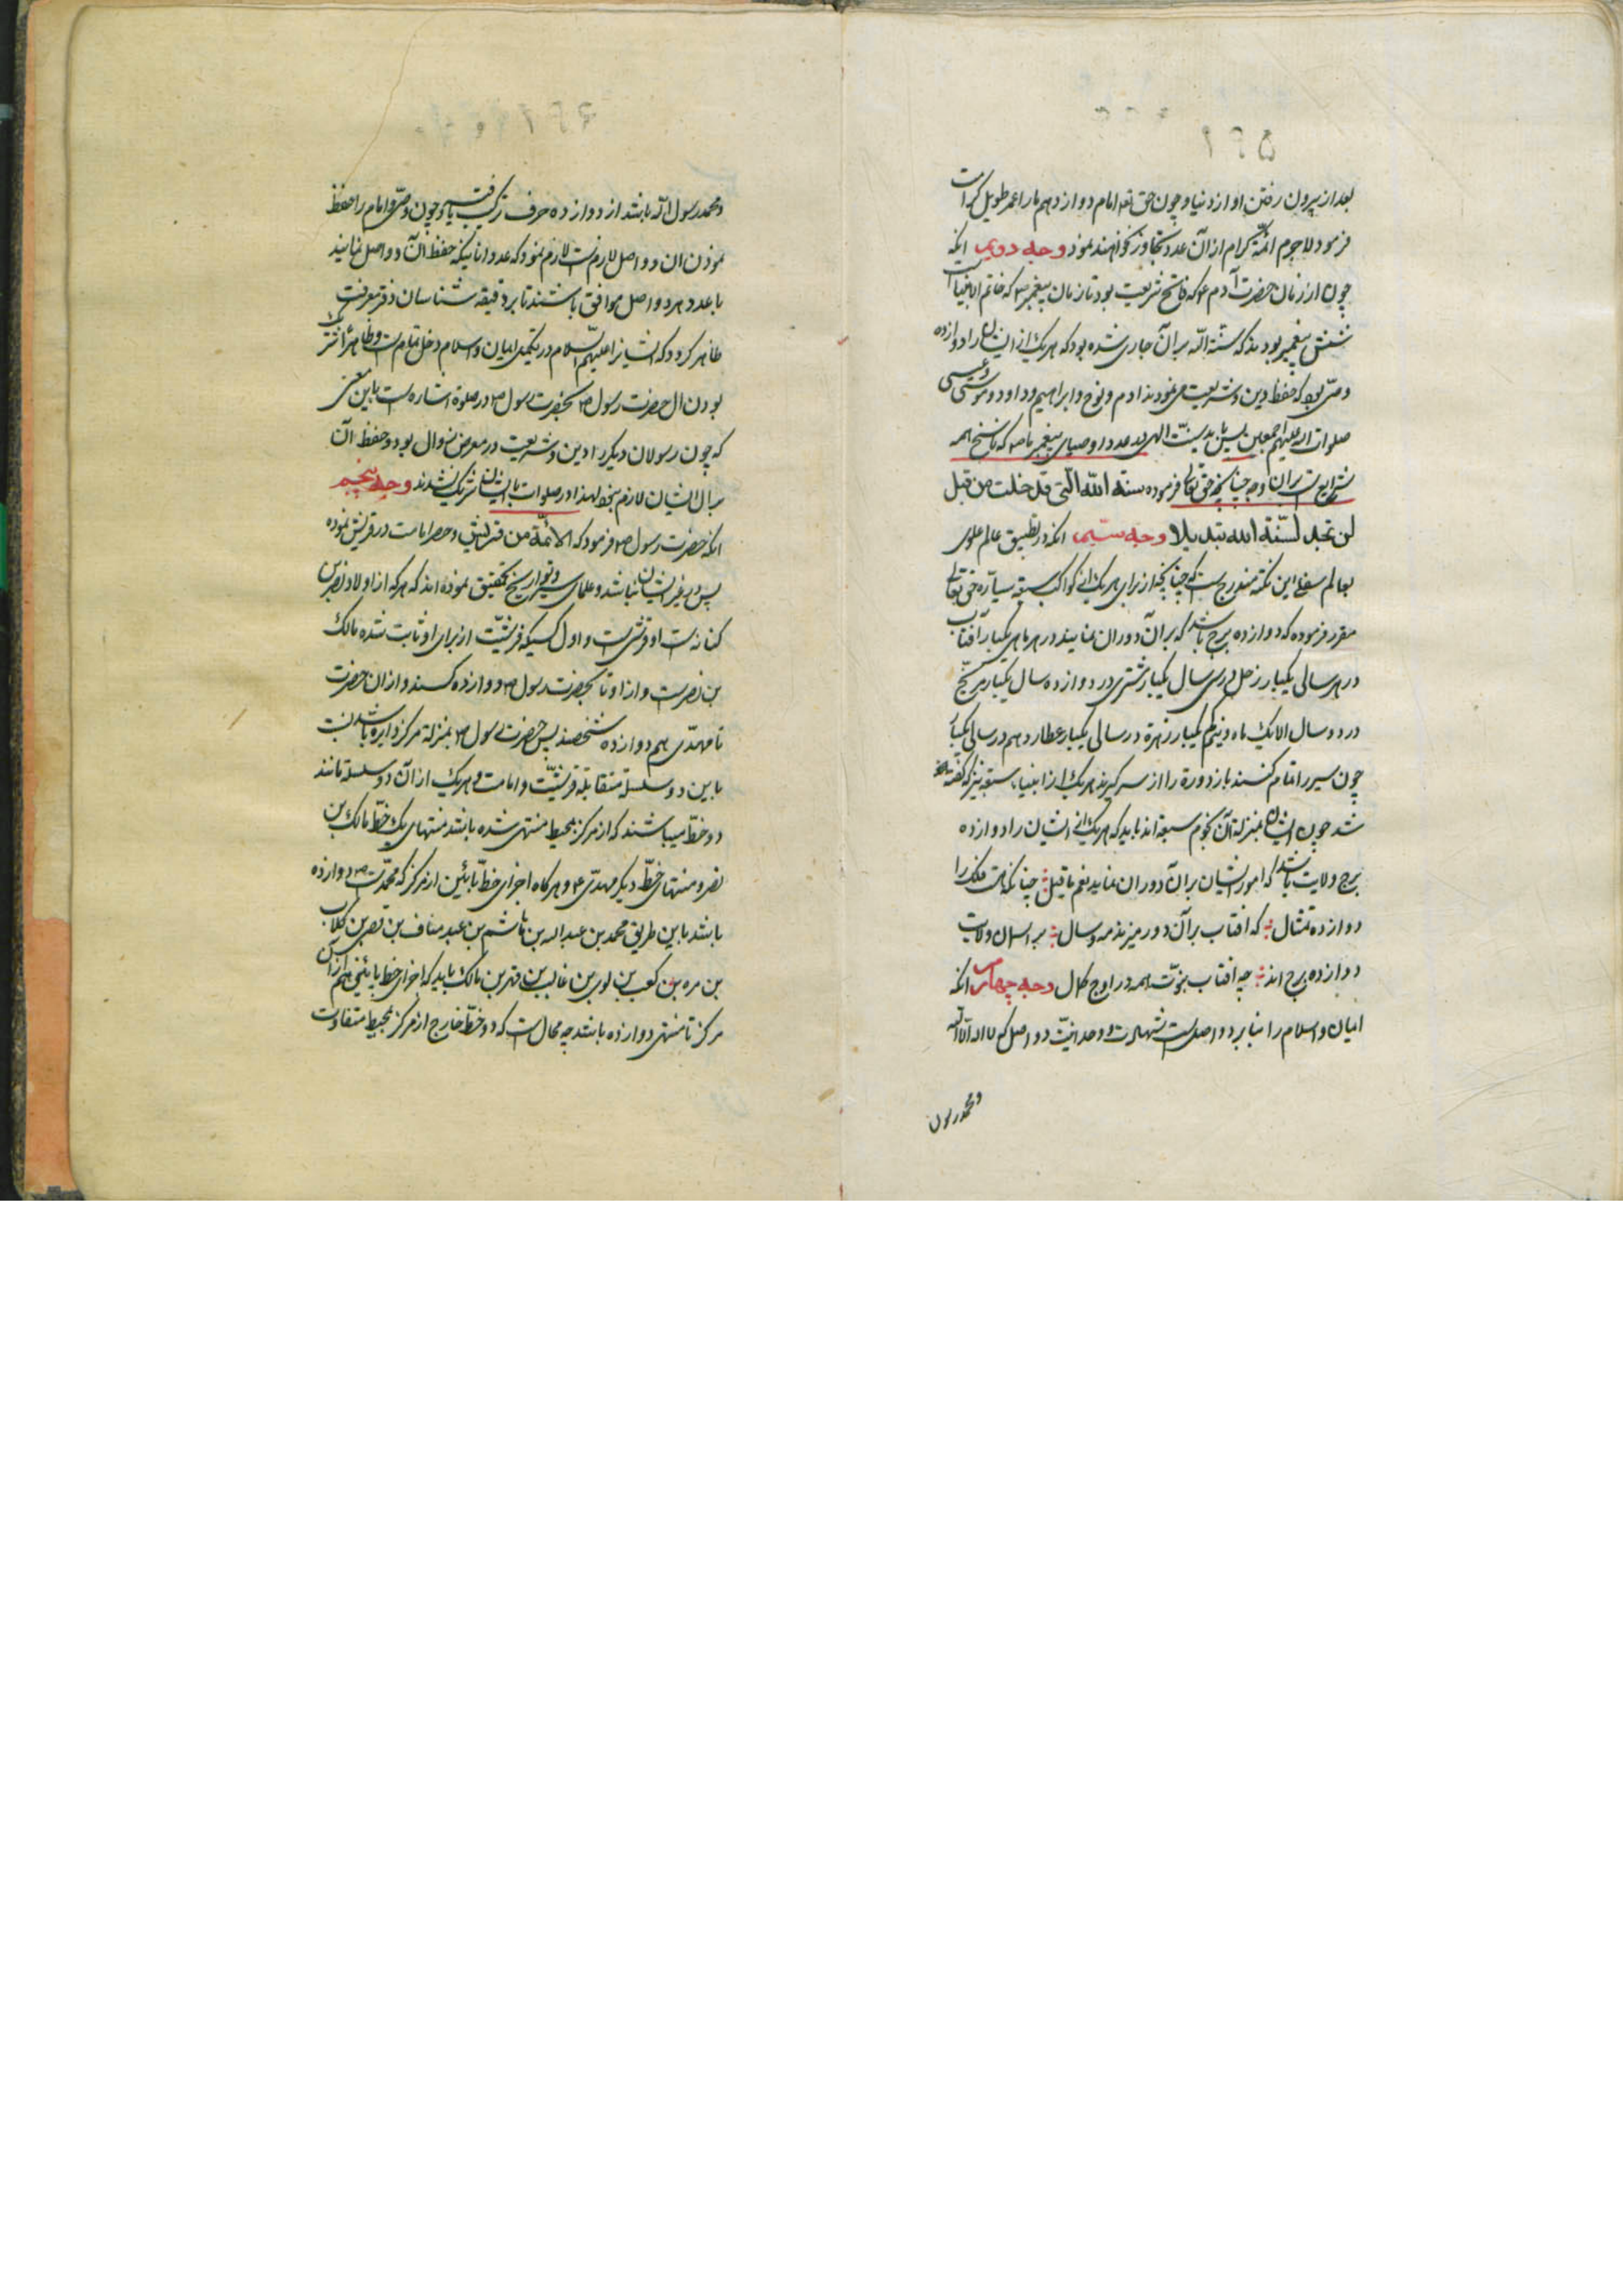 بعد از بیرون رفتن او از دنیا و چون حق تعم امام دوازدهم را عمر طویل کرامت
فرمود لاجرم ائمّه کرام از آن عدد تجاوز نخواهند نمود وجه دویم انکه
چون از زمان حضرت آدم ع که فاتح شریعت بود تا زمان پیغمبر ص که خاتم انبیا است
شش پیغمبر بودند که سنة الله بر آن جاری شده بود که هر یک از ایشان را دوازده
وصیّ بود که حفظ دین و شریعت می نمودند ادم و نوح و ابراهیم و داود و موسی و عیسی
صلوات الله علیهم اجمعین پس باید بسنّت الهی عدد اوصیای پیغمبر ما ص که ناسخ همه
شرایع است بران وجه چنانچه حق تعالی فرموده سنة الله التی قد خلت من قبل
لن تجد لسنّة الله تبدیلا وجه سیّم انکه در تطبیق عالم علوی
بعالم سفلی این نکته مندرج است که چنانچه از برای هر یک از کواکب سبعه سیاره حق تعالی
مقرر فرموده که دوازده برج باشد که بر آن دوران نمایند در هر ماهی یکبار آفتاب
در هر سالی یکبار زحل در سی سال یکبار مشتری در دوازده سال یکبار مریخ
در دو سال الا یک ماه و نیم یکبار زهرة در سالی یکبار عطارد هم در سالی یکبار
چون سیر را تمام کنند باز دورة را از سر گیرند هر یک از انبیاء سبعه نیز که گفته
شد چون ایشان بمنزلة آن نجوم سبعه اند باید که هر یک از ایشان را دوازده
برج ولایت باشد که امور ایشان بر آن دوران نماید نعم ما قیل چنانکه هست فلک را
دوازده تمثال که افتاب بر آن دور میزند مه و سال بر اسمان ولایت
دوازده برج اند چه افتاب نبوّت همه در اوج کمال وجه چهارم انکه
ایمان و اسلام را بنا بر دو اصل است شهادت و وحدانیّت دو اصل که لا اله الّا الله
و محمد رسول
و محمد رسول الله باشد از دوازده حرف ترکیب یافته و چون وصیّ و امام را حفظ
نمودن ان دو اصل لازم است لازم نمود که عدد انانیکه حفظ آن دو اصل نمایند
با عدد هر دو اصل موافق باشند تا بر دقیقه شناسان دفتر معرفت
ظاهر گردد که ایشان را علیهم السّلام در تکمیل ایمان و اسلام دخل تمام است و ظاهرا شریک
بودن ال حضرت رسول ص بحضرت رسول ص در صلوة اشاره است باین معنی
که چون رسولان دیگر را دین و شریعت در معرض زوال بود و حفظ آن
بر ال ایشان لازم نبود لهذا در صلوات با ایشان شریک نشدند وجه پنجم
انکه حضرت رسول ص فرمود که الائمّة من قریش و حصر امامت در قریش نموده
پس در غیر ایشان نباشد و علمای سیر و تواریخ تحقیق نموده اند که هر که از اولاد نضر بن
کنانه است او قرشی است و اول کسیکه قرشیّت از برای او ثابت شده مالک
بن نضر است و از او تا بحضرت رسول ص دوازده کسند و از ان حضرت
تا مهدّی هم دوازده شخصند پس حضرت رسول ص بمنزلة مرکز دایره باشد نسبت
باین دو سلسلة متقابلة قرشیّت و امامت و هر یک از آن دو سلسله مانند
دو خطّ میباشند که از مرکز بمحیط منتهی شده باشد منتهای یک خطّ مالک بن
نضر و منتهای خطّ دیگر مهدّی ع و هرگاه اجزای خطّ پائین از مرکز که محمّد ص است دوازده
باشد باین طریق محمد بن عبد الله بن هاشم بن عبد مناف بن قصی بن کلاب
بن مره بن کعب بن لوی بن غالب بن فهر بن مالک باید که اجزای خط پائینی هم از آن
مرکز تا منتهی دوازده باشد چه محال است که دو خطّ خارج از مرکز بمحیط متفاوت